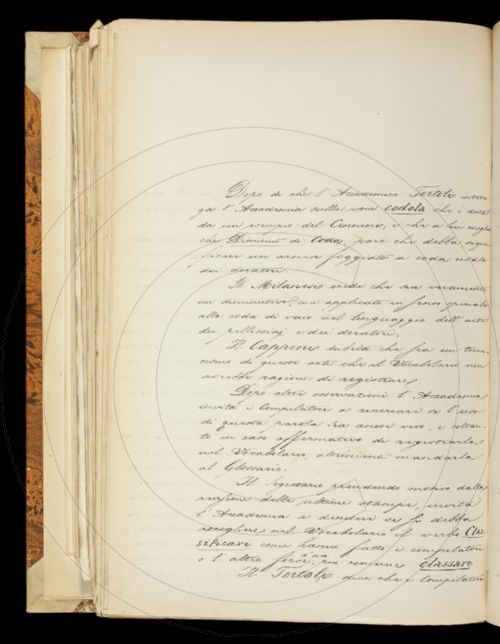 Dopo di che l'Accademico Tortoli interro
ga l'Accademia sulla voce codola che è
da un esempio del Cennino, e che a lui
Diminut di Coda, pare che debba signi
ficare un arnese foggiato a coda
dei doratori.
Il Milanesi crede che sia veramente
un diminutivo, ma applicato in
alla coda di vaio nel linguaggio dell'arte
dei pellicciaj e dei doratori.
Il Capponi dubita che sia un
di queste arti che il Vocabolario non
avrebbe ragione di registrare.
Dopo altre osservazioni l'Accademia
invita i Compilatori a ricercare se l'uso
di questa parola sia ancor vivo, e
te in caso affermativo di registrarla
nel Vocabolario, altrimenti mandarla
al Glossario.
Il Segretario prendendo motivo dalla
delle ultime stampe, invita
l'Accademia a decidere se si debba
accogliere nel Vocabolario il verbo Clas
sificare come hanno fatto i compilatori
o l'altro forse più comune classare
Il Tortoli dice che i Compilatori